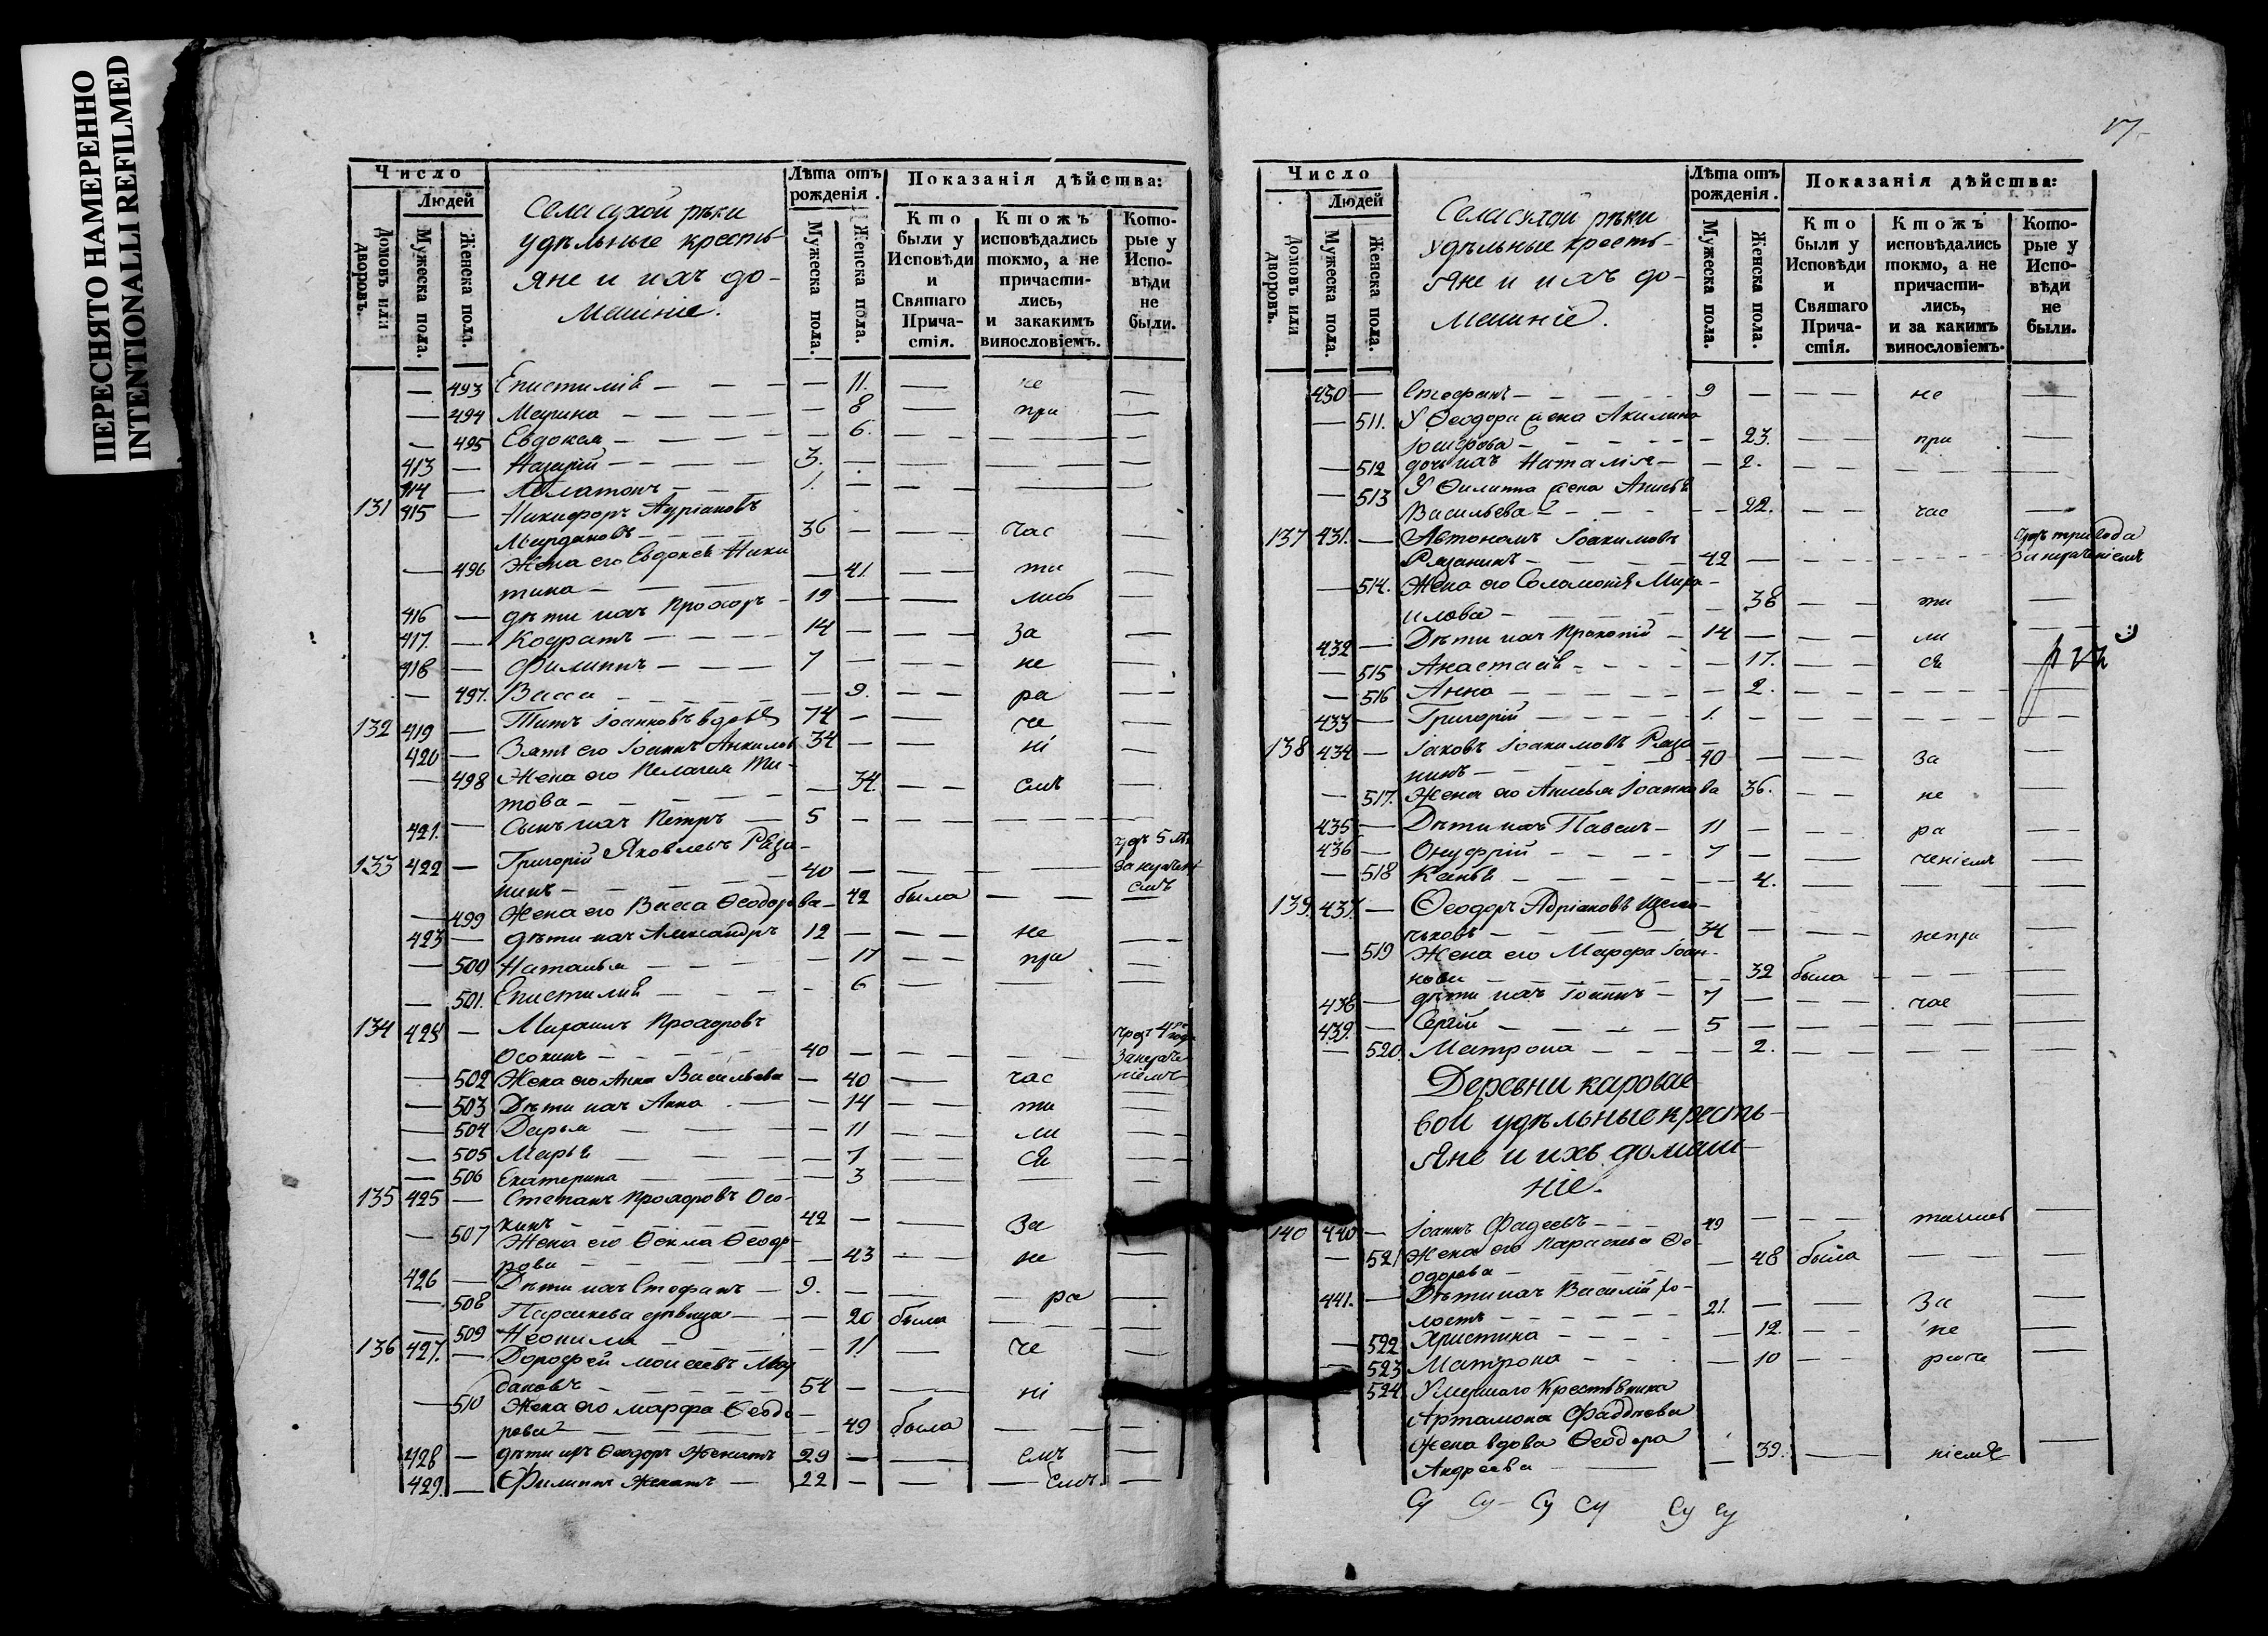 ПЕРЕСНЯТО НАМЕРЕННО
INTENTIONALLI REFILMED
Число
Людей
Домовъ или дворовъ.
Мужеска пола.
Женска пола.
Села сухой рѣки
удѣльные кресть-
яне и ихъ до-
машніе.
Лѣта отъ рожденія.
Мужеска пола.
Женска пола.
Показанія дѣйства:
Кто были у Исповѣди и Святаго Прича-стія.
Ктожъ исповѣдались токмо, а не причасти-лись, и закакимъ винословіемъ.
Кото-рые у Испо-вѣди не были.
— 493 Епистимія — — 11. — не —
— 494 Марина — — 8 — при —
— 495 Евдокея — — 6. — — —
413 — Назарій — 3. — — — —
414 — Платонъ — 1. — — — —
131 415 — Никифоръ Адріановъ
36 — — час —
— 496 Жена его Евдокея Ники
тина — — 41. — ти —
416 — дѣти ихъ Прохоръ — 19 — — лись —
417. — Кодратъ — 14 — — за —
418 — Филиппъ — 7 — — не —
— 497. Васса — — 9. — ра —
132 419 — Титъ Іоанновъ вдовъ 74 — — че —
420 — Зять его Іоаннъ 34 — — ні —
— 498 Жена его Пелагея Ти-
това — — 34. — емъ —
421. — Сынъ ихъ Петръ — 5 — — — —
133 422 — Григорій Яковлевъ Ряза-
нинъ — 40 — — —
— 499 Жена его Васса Ѳеодорова — 42 была — —
423 — дѣти ихъ Александръ 12 — — не —
— 500 Наталья — — 17 — при —
— 501. Епистимія — — 6 — — —
134 424 — Михаилъ Прохоровъ
Осокинъ — 40 — — —
— 502 Жена его Анна Васильева — 40 — час
— 503 Дѣти ихъ Анна — — 14 — ти —
— 504 Дарья — — 11 — ли —
— 505 Марья — — 7 — ся —
— 506 Екатерина — — 3 — — —
135 425 — Степанъ Прохоровъ Осо-
кинъ — 42 — — за
— 507 Жена его Ѳекла Ѳеодо-
рова — — 43 — не —
426 — Дѣти ихъ Стефанъ — 9. — — ра —
— 508 Параскева дѣвица — — 20 была — —
— 509 Неонила — — 11 — че —
136 427. — Дорофей Моисеевъ Мар
дановъ — 54 — — ні —
— 510 Жена его Марфа Ѳеодо-
рова — — 49 была — —
428 — дѣти ихъ Ѳеодоръ женатъ 29 — — емъ —
429. — Филиппъ женатъ — 22 — — емъ. —
17
Число
Людей
Домовъ или дворовъ.
Мужеска пола.
Женска пола.
Села сухой рѣки
удѣльные кресть-
яне и ихъ до-
машніе.
Лѣта отъ рожденія.
Мужеска пола.
Женска пола.
Показанія дѣйства:
Кто были у Исповѣди и Святаго Прича-стія.
Ктожъ исповѣдались токмо, а не причасти-лись, и за какимъ винословіемъ.
Кото-рые у Испо-вѣди не были.
430 — Стефанъ — 9 — — не —
— 511. У Ѳеодора жена Акилина
— 23. — при —
— 512 дочь ихъ Наталія — — 2. — — —
— 513 У Филиппа жена
Васильева — — 22. — час —
137 431. — Автономъ Іоакимовъ
Рязанинъ — 42 — — — три года
— 514. Жена его Соломонія Миха-
илова — — 38 — ти —
432 — Дѣти ихъ Прокопій — 14 — — ли —
— 515 Анастасія — — 17. — ся
— 516 Анна — — 2. — — —
433 — Григорій — 1. — — — —
138 434 — Іаковъ Іоакимовъ Ряза-
нинъ — 40 — — за —
— 517. Жена его Анисья Іоаннова 36. — не —
435 — Дѣти ихъ Павелъ — 11 — — ра —
436 — Онуфрій — 7 — — ченіемъ —
— 518 Ксенія — — 4. — — —
139. 437. — Ѳеодоръ Адріановъ Щел-
чковъ — 34 — — непри —
— 519 Жена его Марфа Іоан-
нова — — 32 была — —
438 — дѣти ихъ Іоаннъ — 7 — — час —
439. — Сергій — 5 — — — —
— 520. Матрона — — 2. — — —
Деревни
вой удѣльные кресть-
яне и ихъ домаш-
ніе.
140 440 — Іоаннъ Фадеевъ — 49 — —
— 521 Жена его Параскева Ѳе-
одорова — — 48 была — —
441. — Дѣти ихъ Василій хо-
лостъ — 21. — — за —
— 522 Христина — — 12. — не —
— 523 Матрона — — 10 — раче —
— 524. Умершаго Крестьянина
Артамона Фаддѣева
Жена вдова Ѳеодора
Андреева — — 39. — ніемъ —
Су Су Су Су Су Су